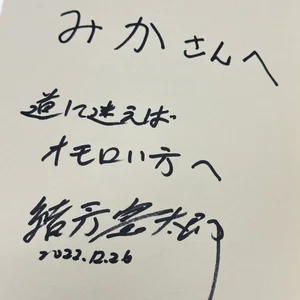 みかさんへ
道に迷えば
オモロい方へ
2022.12.26